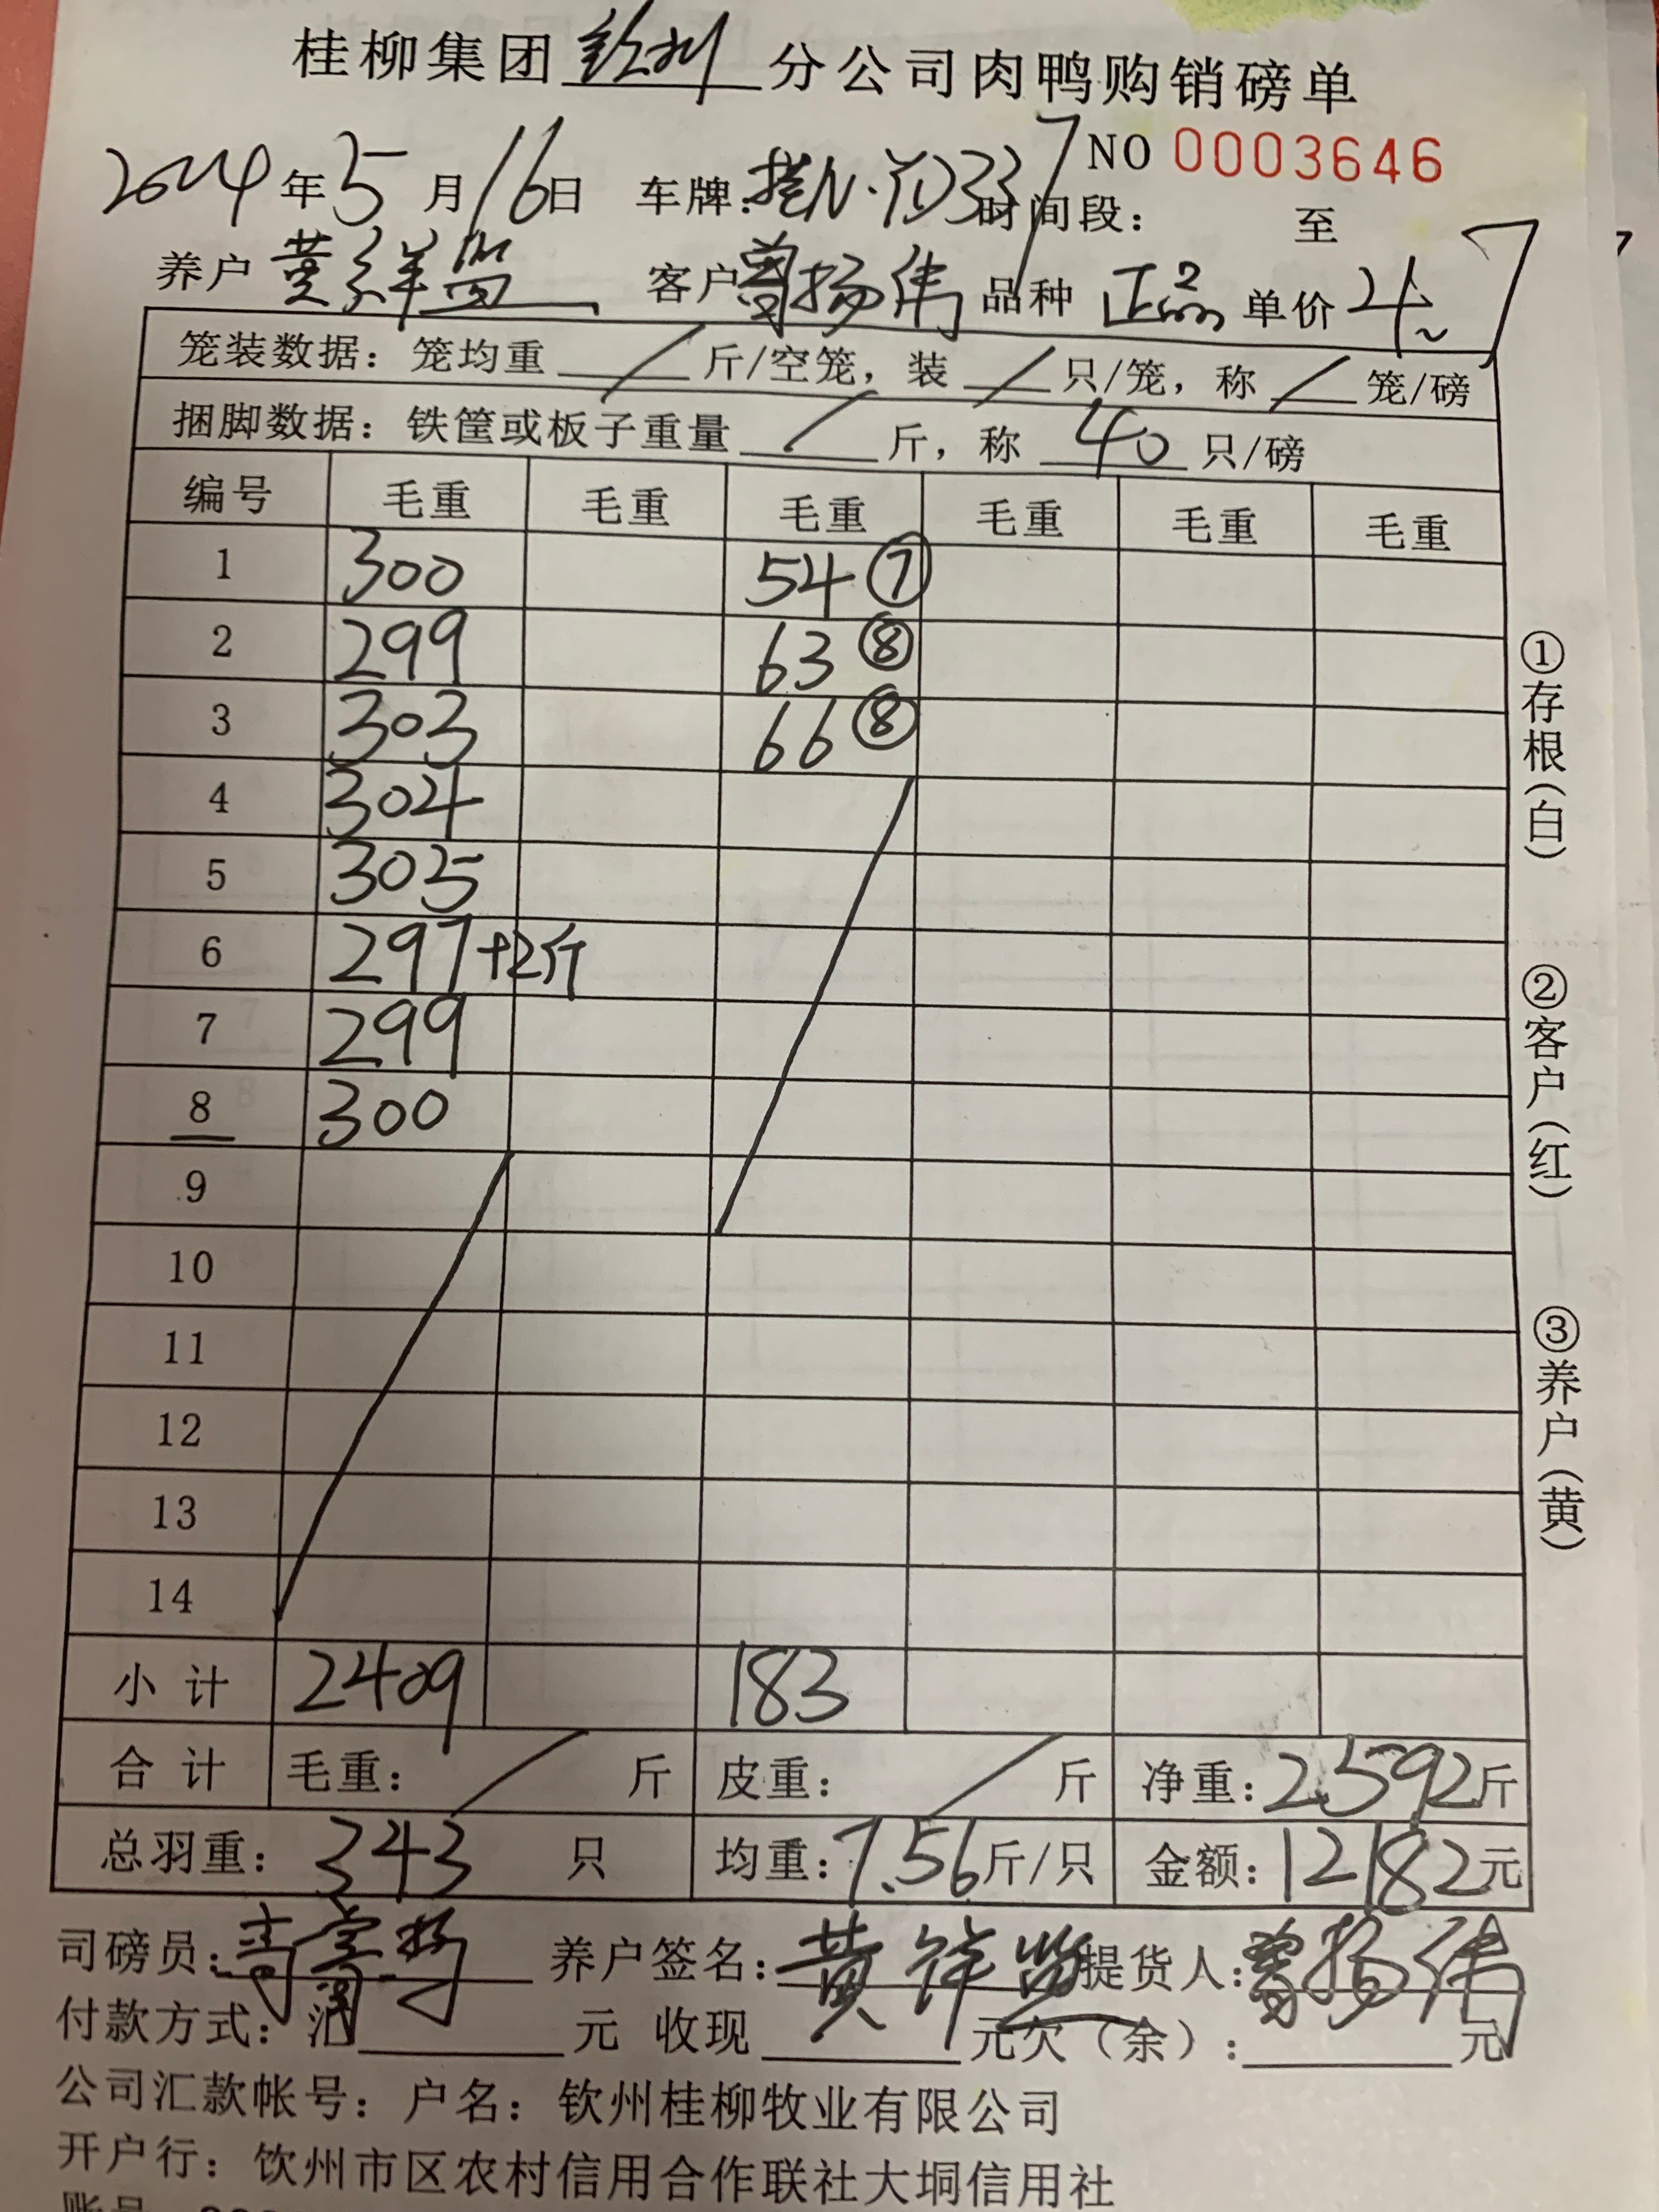 桂柳集团钦州分公司肉鸭购销磅单
NO 0003646
2024年5月16日 车牌: 时间段: 至
养户 黄 客户 曾扬伟 品种 正品 单价
笼装数据：笼均重 / 斤/空笼，装 / 只/笼，称 / 笼/磅
捆脚数据：铁筐或板子重量 / 斤，称 40 只/磅
编号 毛重 毛重 毛重 毛重 毛重 毛重
1 300 54 ⑦
2 299 63 ⑧
3 303 66 ⑧
4 304
5 305
6 297+2斤
7 299
8 300
9
10
11
12
13
14
小计 2409 183
合计 毛重： / 斤 皮重： / 斤 净重：2592斤
总羽重：343 只 均重：7.56斤/只 金额：12182元
司磅员： 养户签名：黄 提货人：曾扬伟
付款方式：汇 元 收现 元 欠（余）： 元
公司汇款帐号：户名：钦州桂柳牧业有限公司
开户行：钦州市区农村信用合作联社大垌信用社
①存根(白)
②客户(红)
③养户(黄)